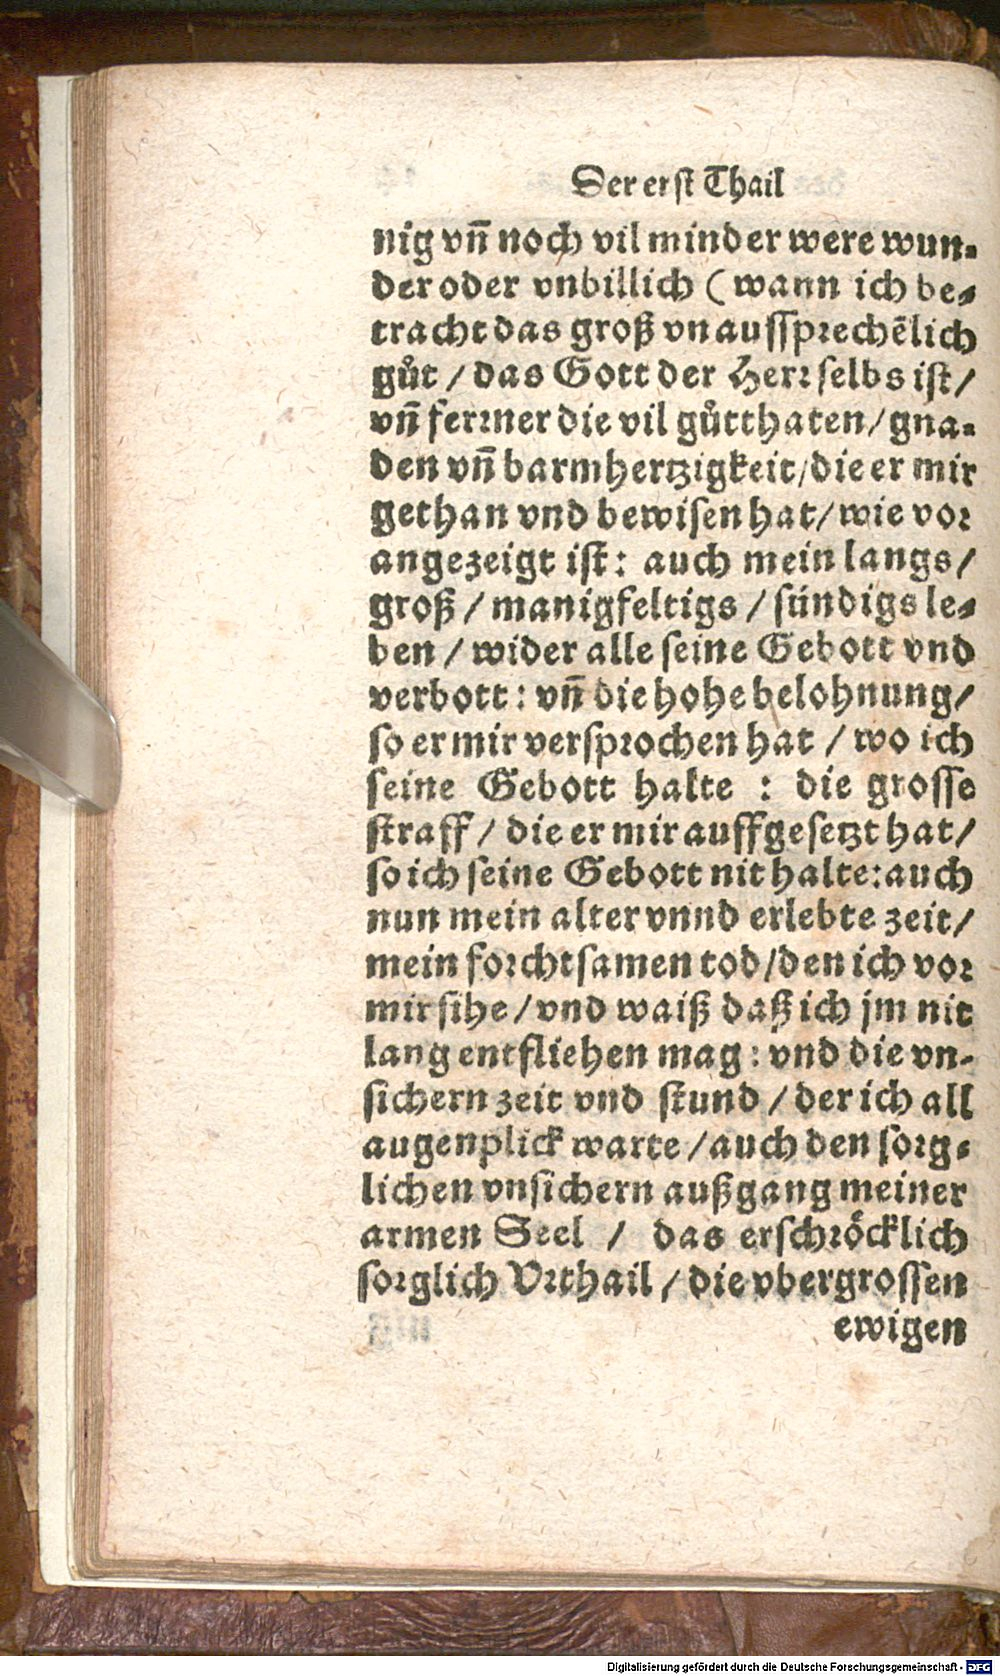 Der erst Thail
nig vñ noch vil minder were wun-
der oder vnbillich (wann ich be-
tracht das groß vnaussprechẽlich
gůt / das Gott der Herr selbs ist /
vñ ferrner die vil gůtthaten / gna-
den vñ barmhertzigkeit / die er mir
gethan vnd bewisen hat / wie vor
angezeigt ist : auch mein langs /
groß / manigfeltigs / sündigs le-
ben / wider alle seine Gebott vnd
verbott : vñ die hohe belohnung /
so er mir versprochen hat / wo ich
seine Gebott halte : die grosse
straff / die er mir auffgesetzt hat /
so ich seine Gebott nit halte : auch
nun mein alter vnnd erlebte zeit /
mein forchtsamen tod / den ich vor
mir sihe / vnd waiß daß ich jm nit
lang entfliehen mag : vnd die vn-
sichern zeit vnd stund / der ich all
augenplick warte / auch den sorg-
lichen vnsichern außgang meiner
armen Seel / das erschröcklich
sorglich Vrthail / die vbergrossen
ewigen
Digitalisierung gefördert durch die Deutsche Forschungsgemeinschaft - DFG